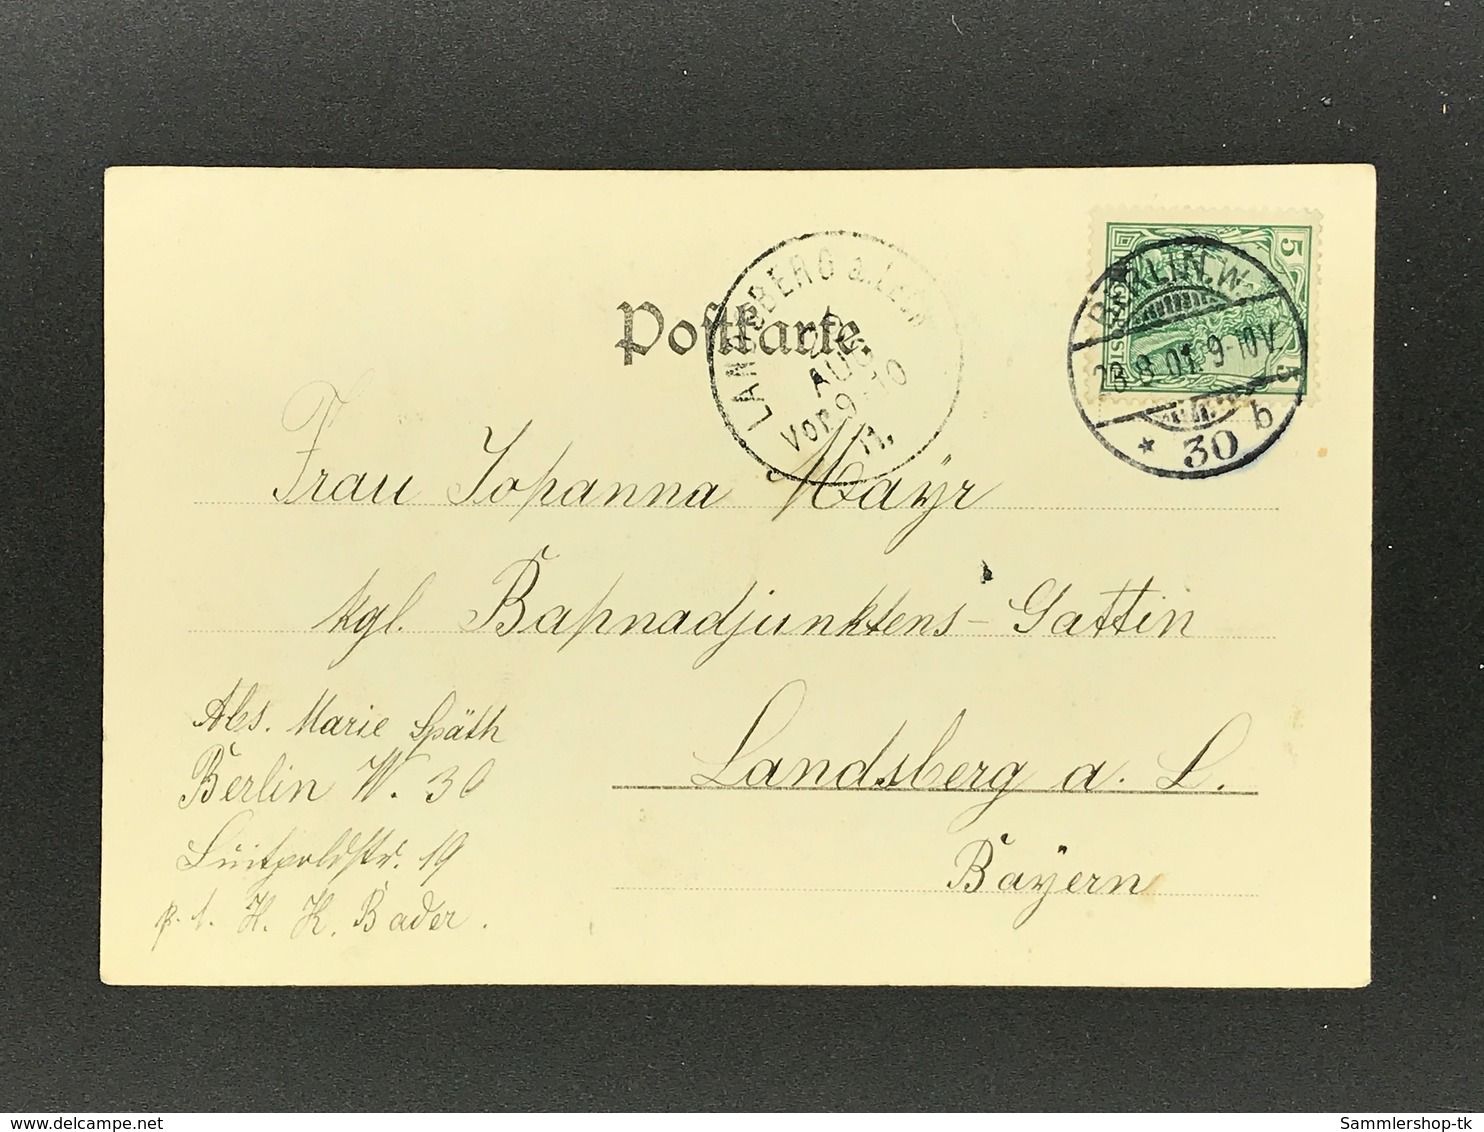 Postkarte.
LANDSBERG a. Lech
AUG
Vor. 9-10
BERLIN. W.
28.8.01. 9-10V.
* 30 b
5
5
Frau Johanna Mayr
kgl. Bahnadjunktens-Gattin
Landsberg a. L.
Bayern
Abs. Marie Späth
Berlin W. 30
Luitpoldstr. 19
H. K. Bader.
picture from delcampe.net
Sammlershop-tk